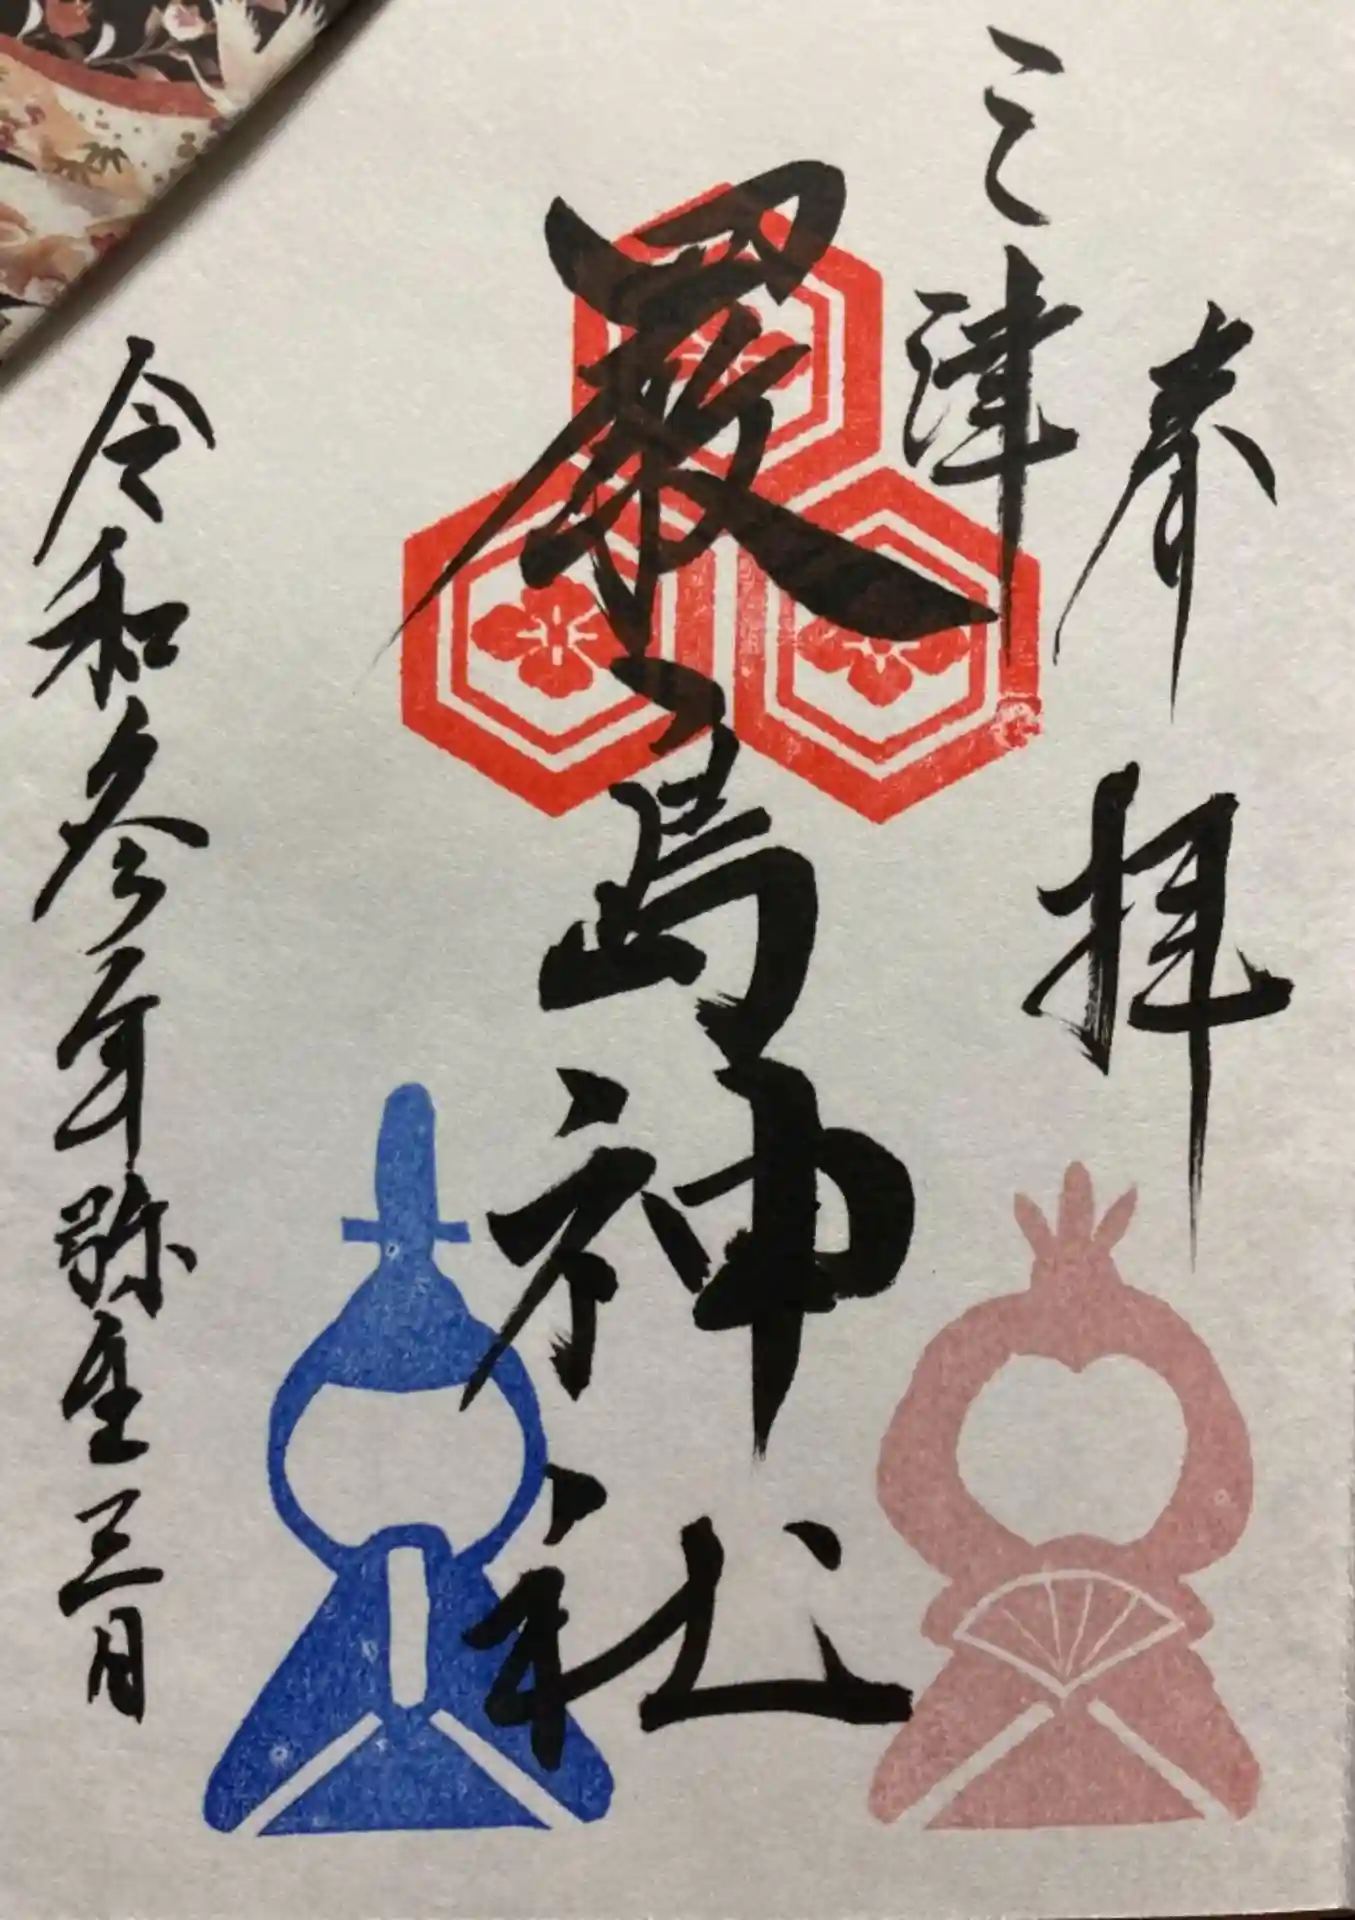 奉拝
三津
厳島神社
令和参年弥生三月